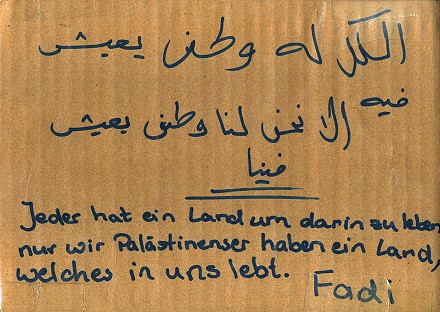 الكل له وطن يعيش
فيه
إلا نحن لنا وطن يعيش
فينا
Jeder hat ein Land um darin zu leben
nur wir Palästinenser haben ein Land,
welches in uns lebt.
Fadi